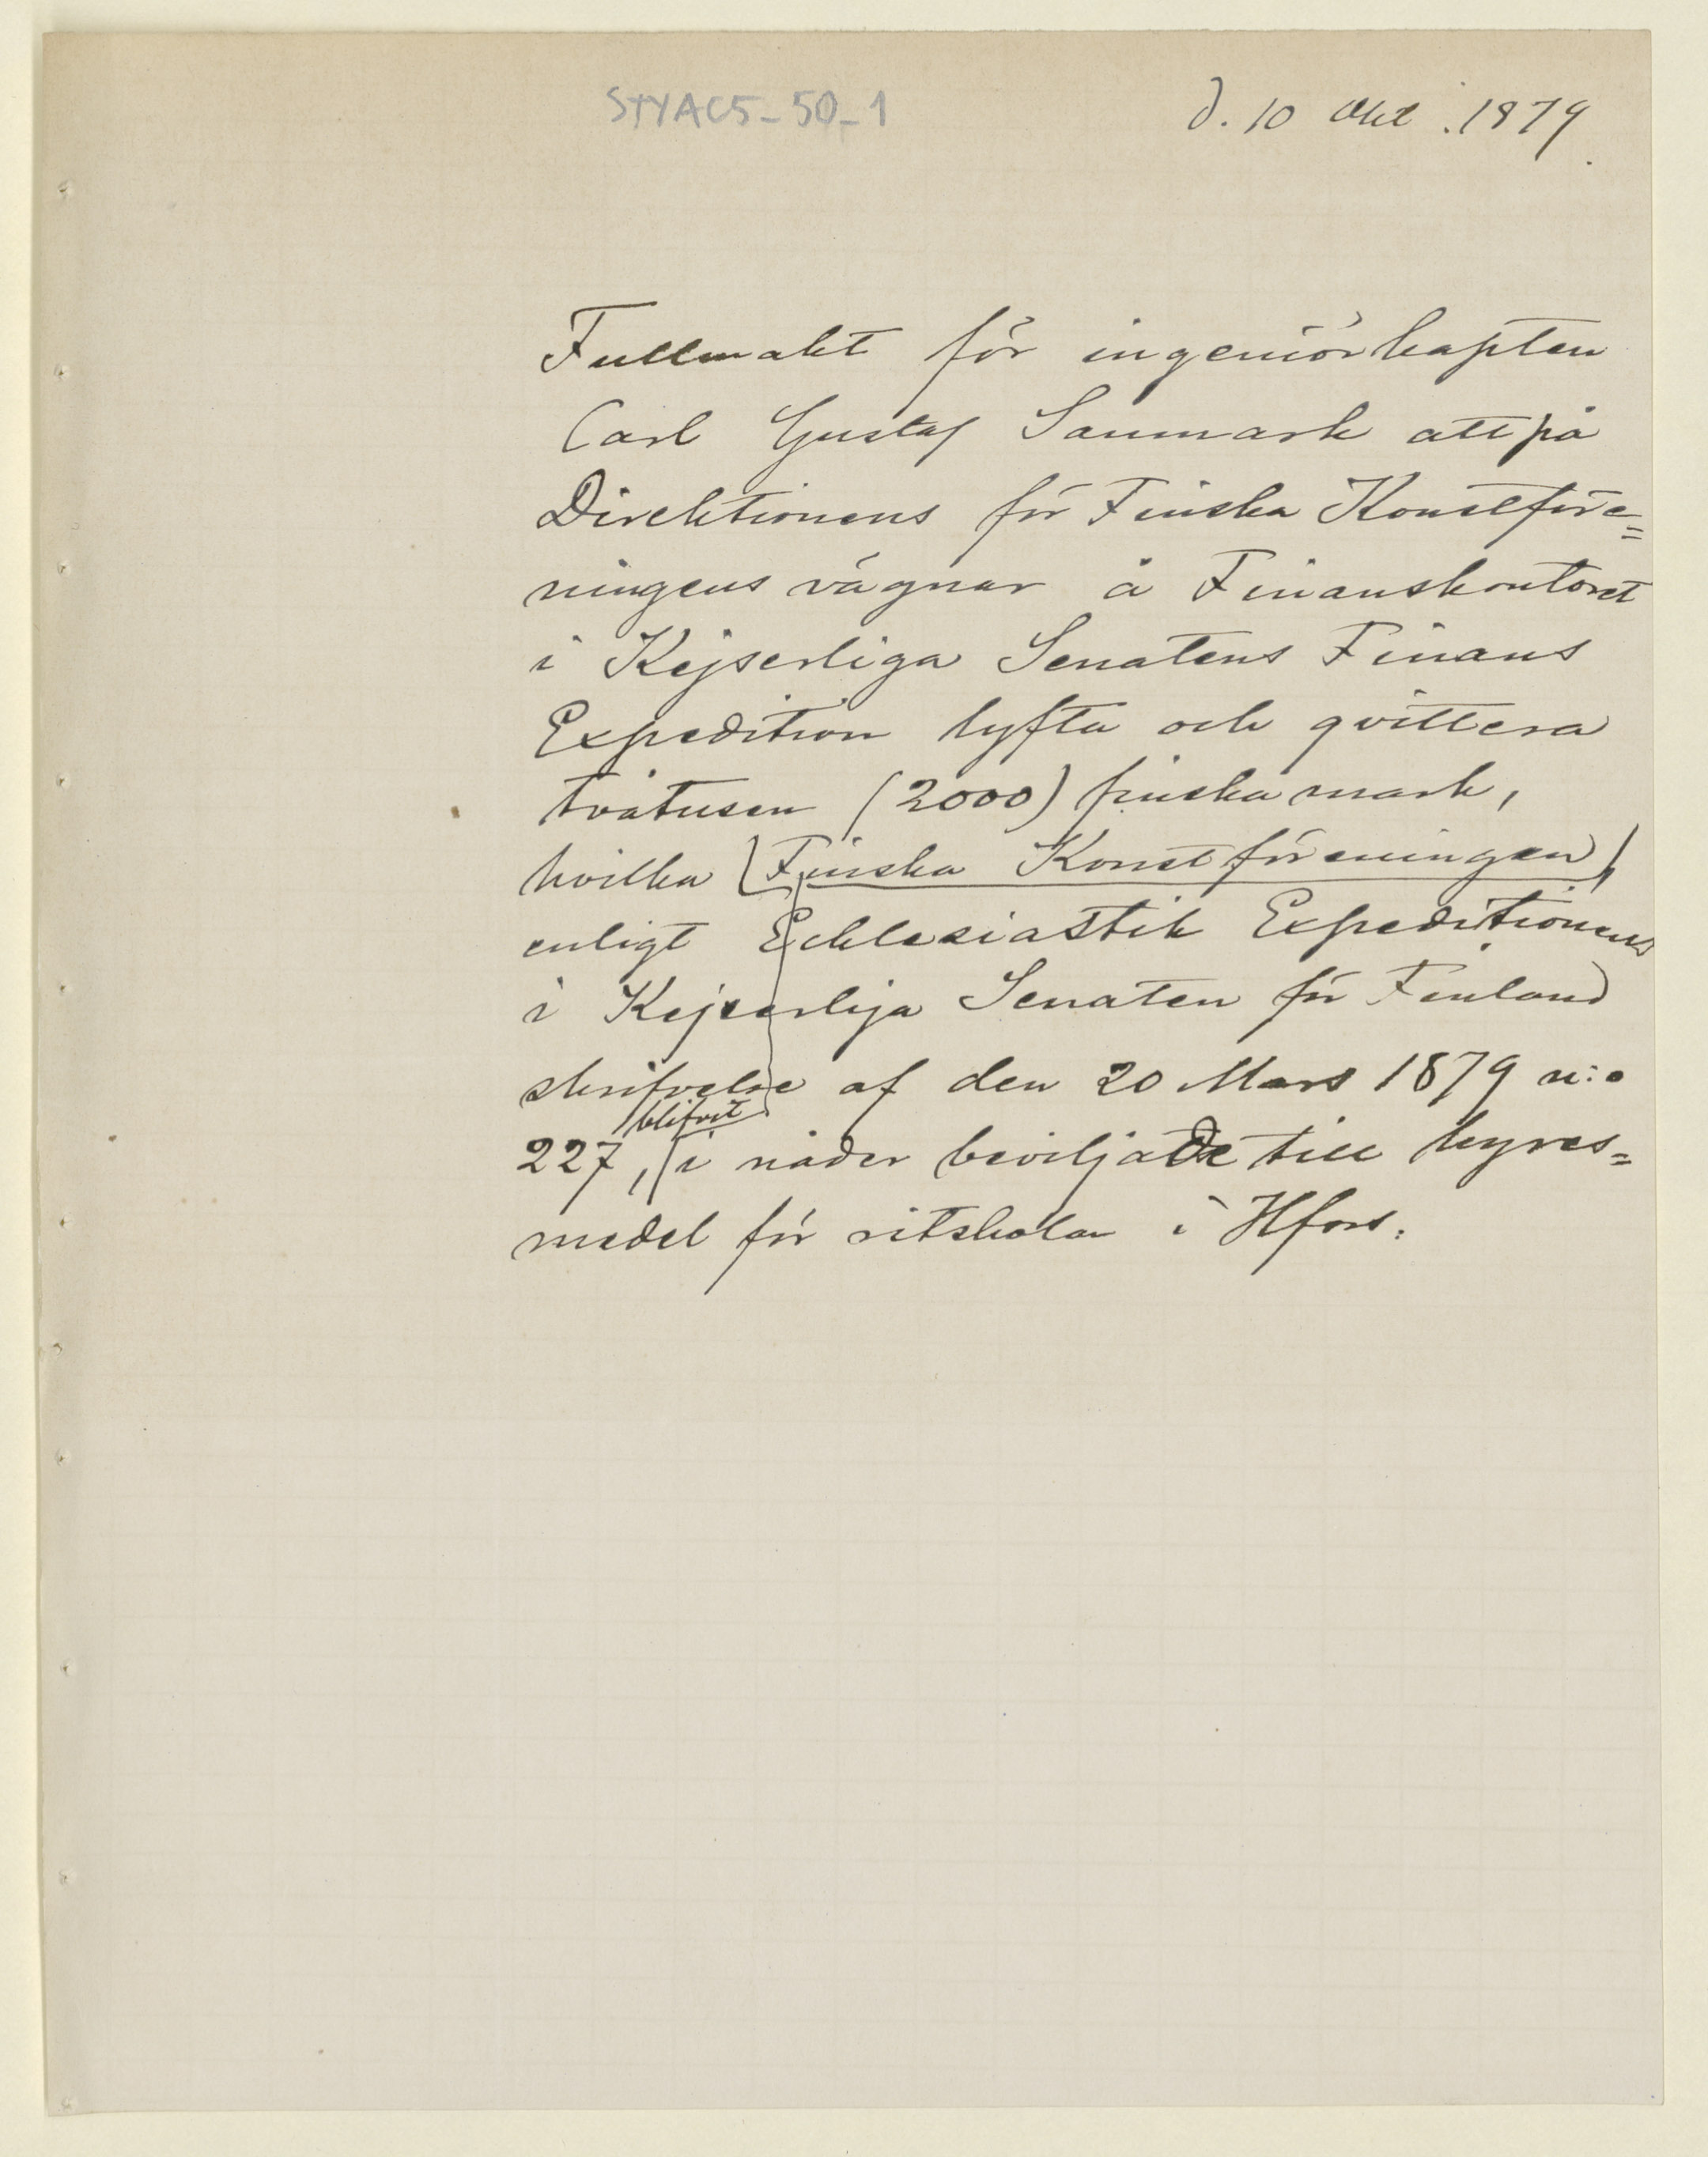 STYAC5-50-1
d. 10 Okt. 1879.
Fullmakt för ingeniörkapten
Carl Gustaf Sanmark att på
Direktionens för Finska Konstföre=
ningens vägnar å Finanskontoret
i Kejserliga Senatens Finans
Expedition lyfta och qvittera
tvåtusen (2000) finska mark,
hvilka (Finska Konstföreningen)
enligt Ecklesiastik Expeditionens
i Kejserliga Senaten för Finland
skrifvelse af den 20 Mars 1879 n:o
blifvit
227, i nåder beviljade till hyres=
medel för ritskolan i Hfors.